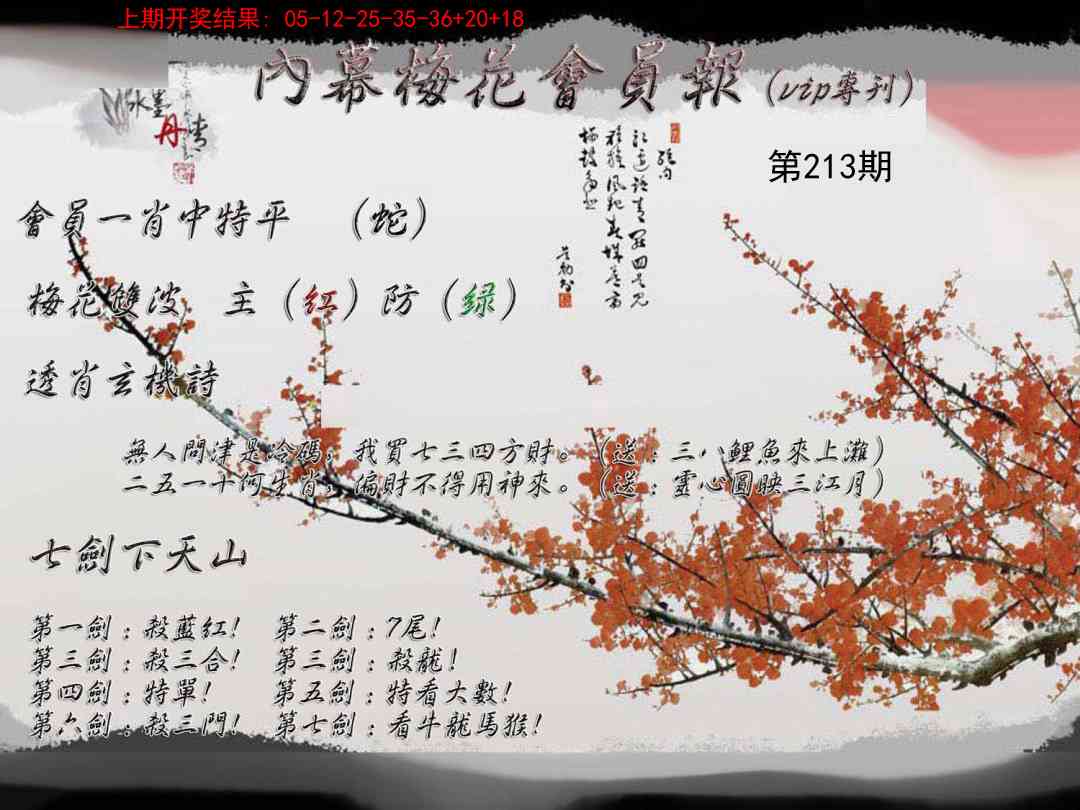 上期开奖结果: 05-12-25-35-36+20+18
內幕梅花會員報(vip專刊)
水墨
丹青
第213期
會員一肖中特平 (蛇)
梅花雙波 主(红)防(绿)
透肖玄機詩
無人問津是冷碼，我買七三四方財。(送：三八鯉魚來上灘)
二五一十何生肖，偏財不得用神來。(送：靈心圓映三江月)
七劍下天山
第一劍：殺藍紅! 第二劍：7尾!
第三劍：殺三合! 第三劍：殺龍!
第四劍：特單! 第五劍：特看大數!
第六劍：殺三門! 第七劍：看牛龍馬猴!